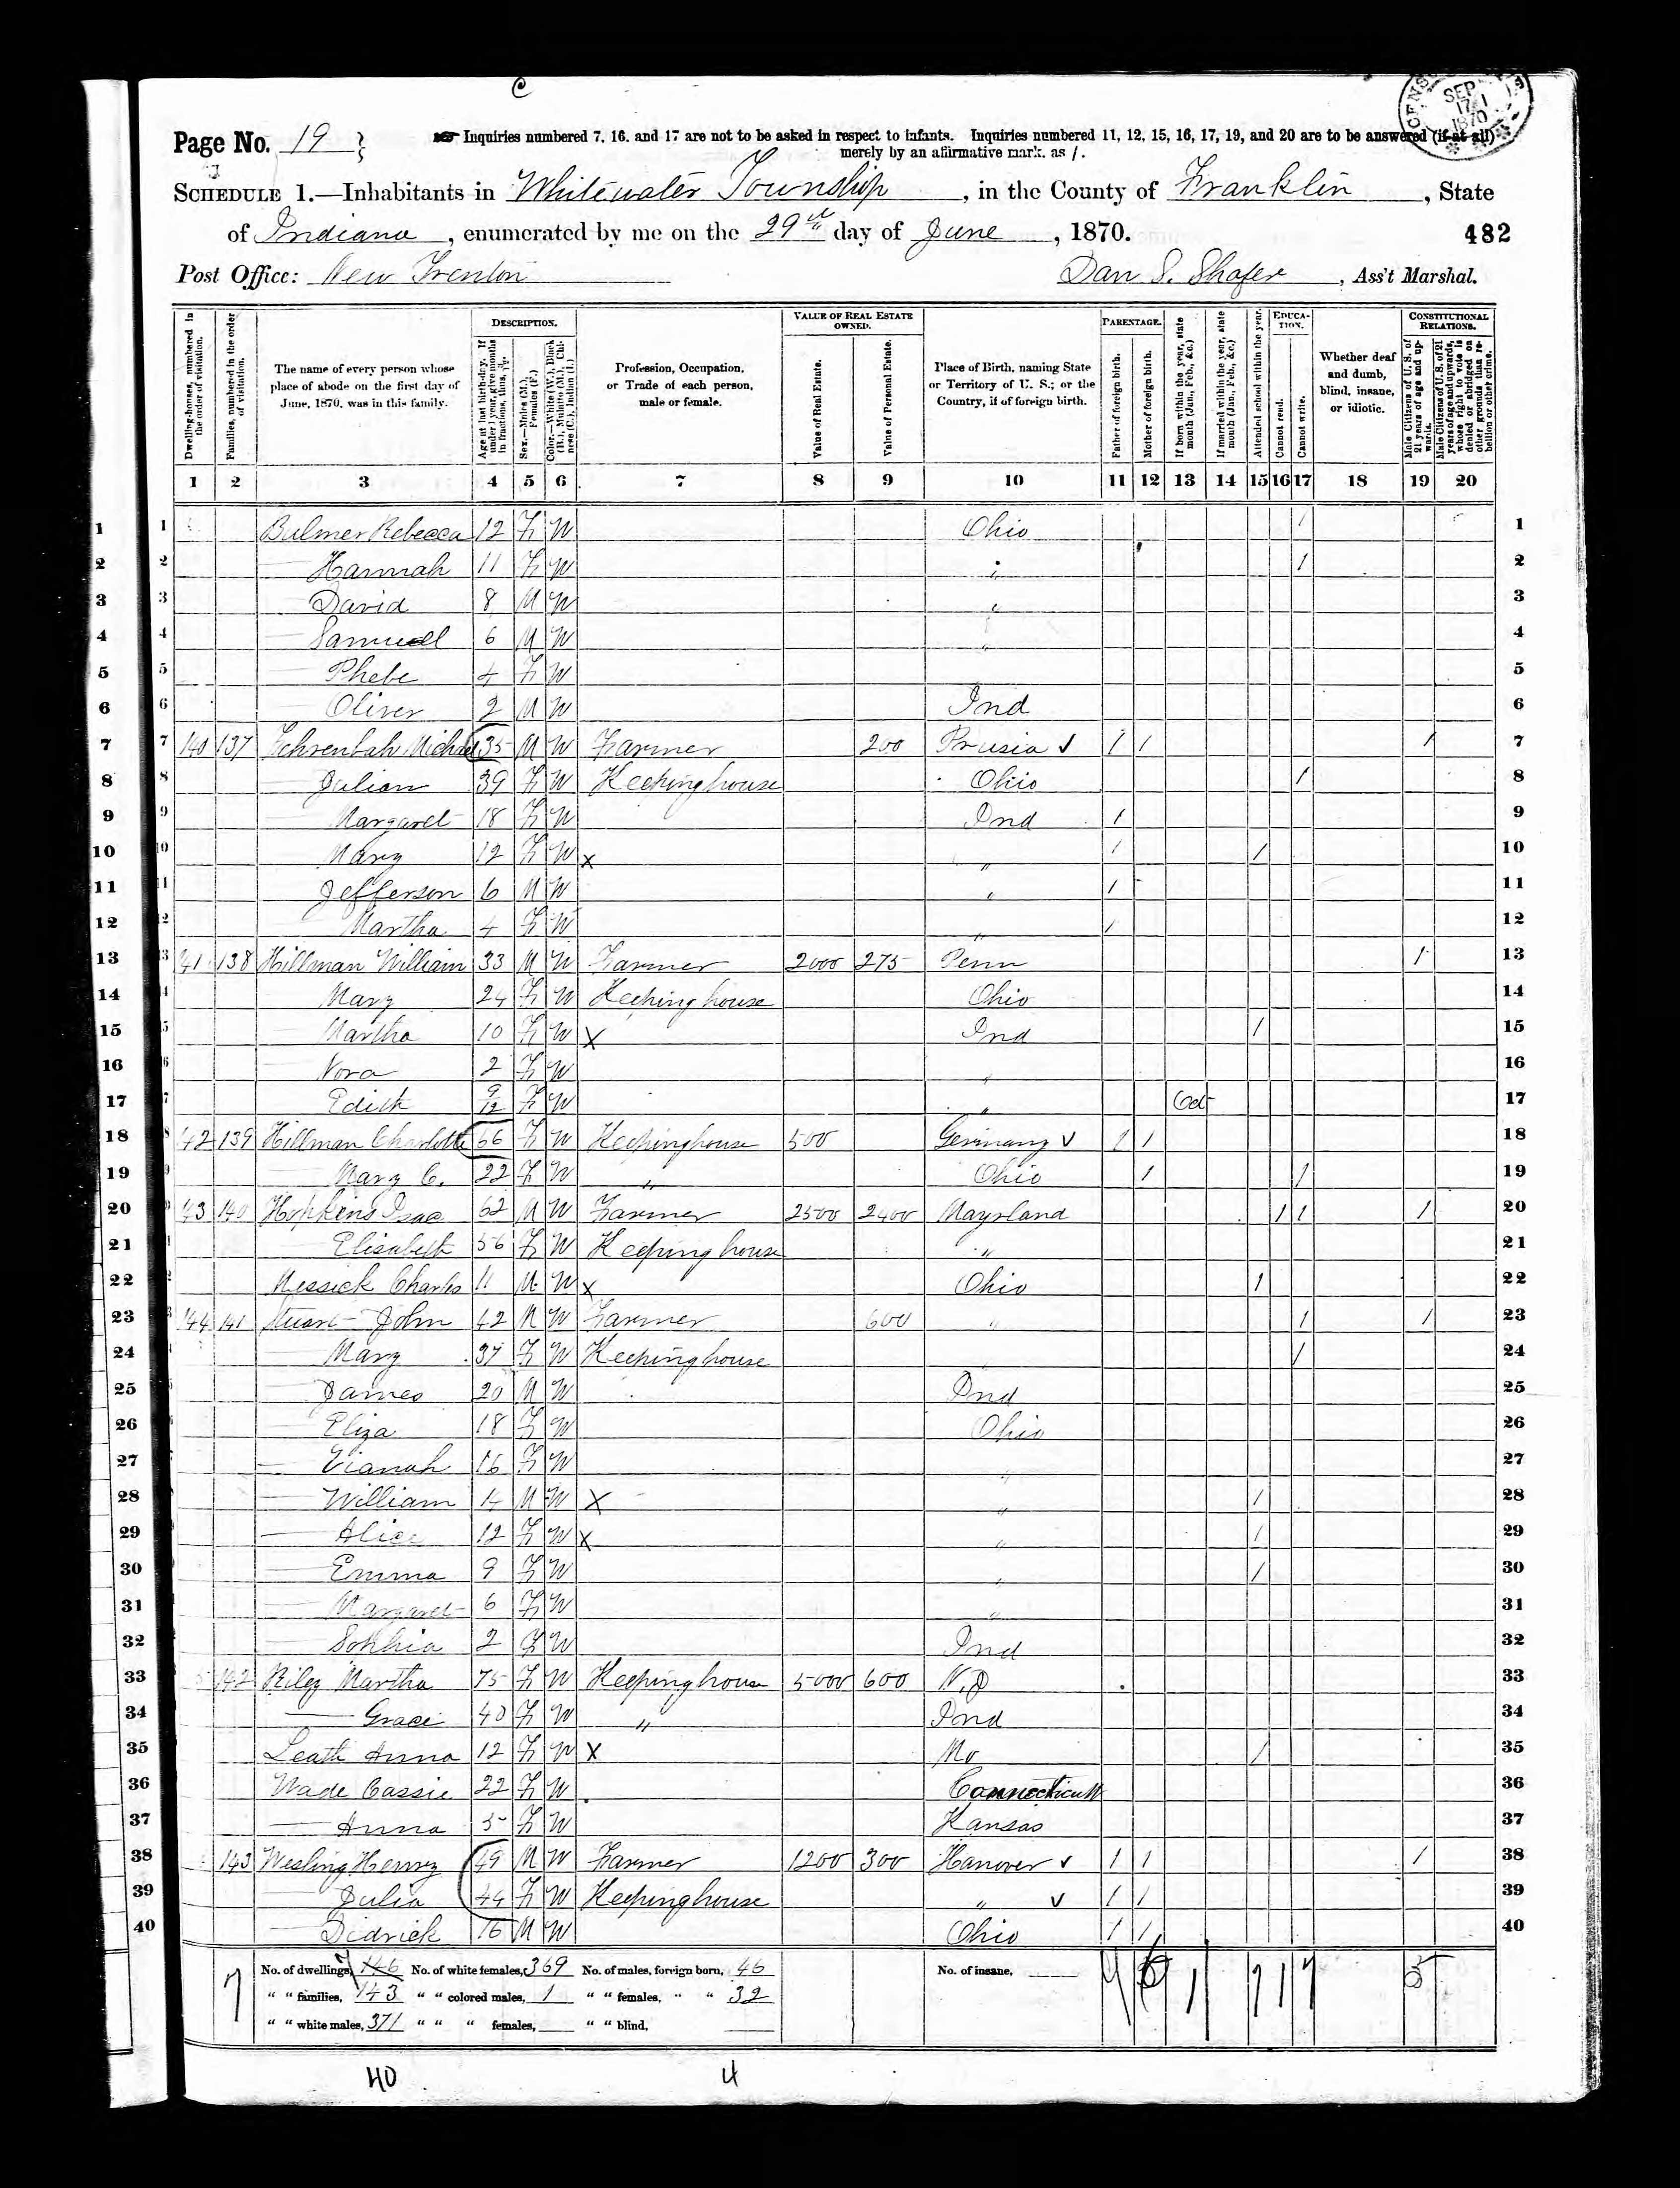 C
CENSUS SEP 17 1870
Page No. 19
Inquiries numbered 7, 16, and 17 are not to be asked in respect to infants. Inquiries numbered 11, 12, 15, 16, 17, 19, and 20 are to be answered (if at all)
merely by an affirmative mark, as /.
SCHEDULE 1.—Inhabitants in Whitewater Township, in the County of Franklin, State
of Indiana, enumerated by me on the 29th day of June, 1870.
482
Post Office: New Trenton
Dan S. Shafer, Ass't Marshal.
Dwelling-houses, numbered in the order of visitation.
Families, numbered in the order of visitation.
The name of every person whose place of abode on the first day of June, 1870, was in this family.
DESCRIPTION.
Age at last birth-day. If under 1 year, give months in fractions, thus, 3/12.
Sex.—Males (M.), Females (F.)
Color.—White (W.), Black (B.), Mulatto (M.), Chinese (C.), Indian (I.)
Profession, Occupation, or Trade of each person, male or female.
VALUE OF REAL ESTATE OWNED.
Value of Real Estate.
Value of Personal Estate.
Place of Birth, naming State or Territory of U. S.; or the Country, if of foreign birth.
PARENTAGE.
Father of foreign birth.
Mother of foreign birth.
If born within the year, state month (Jan., Feb., &c.)
If married within the year, state month (Jan., Feb., &c.)
Attended school within the year.
EDUCATION.
Cannot read.
Cannot write.
Whether deaf and dumb, blind, insane, or idiotic.
CONSTITUTIONAL RELATIONS.
Male Citizens of U. S. of 21 years of age and upwards.
Male Citizens of U. S. of 21 years of age and upwards, whose right to vote is denied or abridged on other grounds than rebellion or other crime.
1 2 3 4 5 6 7 8 9 10 11 12 13 14 15 16 17 18 19 20
1 Bulmer Rebecca 12 F W Ohio / 1
2 — Hannah 11 F W " / 2
3 — David 8 M W " 3
4 — Samuell 6 M W " 4
5 — Phebe 4 F W 5
6 — Oliver 2 M W Ind 6
7 140 137 Fehrenbah Michael 35 M W Farmer 200 Prusia √ / / / 7
8 — Julian 39 F W Keeping house Ohio / 8
9 — Margaret 18 F W Ind / 9
10 — Mary 12 F W x " / / 10
11 — Jefferson 6 M W " / 11
12 — Martha 4 F W " / 12
13 41 138 Hillman William 33 M W Farmer 2000 275 Penn / 13
14 — Mary 24 F W Keeping house Ohio 14
15 — Martha 10 F W X Ind / 15
16 — Nora 2 F W " 16
17 — Edith 9/12 F W " Oct 17
18 42 139 Hillman Charlotte 66 F W Keeping house 500 Germany √ / / 18
19 — Mary C. 22 F W " Ohio / / 19
20 43 140 Hopkins Isac 62 M W Farmer 2500 2400 Mayrland / / / 20
21 — Elisabeth 56 F W Keeping house " 21
22 Messick Charles 11 M W x Ohio / 22
23 44 141 Stuart John 42 M W Farmer 600 " / / 23
24 — Mary 37 F W Keeping house " / 24
25 — James 20 M W Ind 25
26 — Eliza 18 F W Ohio 26
27 — 16 F W " 27
28 — William 14 M W X " / 28
29 — Alice 12 F W x " / 29
30 — Emma 9 F W " / 30
31 — Margaret 6 F W " 31
32 — Sophia 2 F W Ind 32
33 142 Riley Martha 75 F W Keeping house 5000 600 N.J 33
34 — Grace 40 F W " Ind 34
35 Leath Anna 12 F W X Mo / 35
36 Wade Cassie 22 F W Connecticutt 36
37 — Anna 5 F W Kansas 37
38 143 Wesling Henry 49 M W Farmer 1200 300 Hanover √ / / / 38
39 — Julia 44 F W Keeping house " √ / / 39
40 — Didrick 16 M W Ohio / / 40
7 No. of dwellings, 146 No. of white females, 369 No. of males, foreign born, 46 No. of insane,
" " families, 143 " " colored males, 1 " " females, " " 32
" " white males, 371 " " " females, " " blind,
40 4